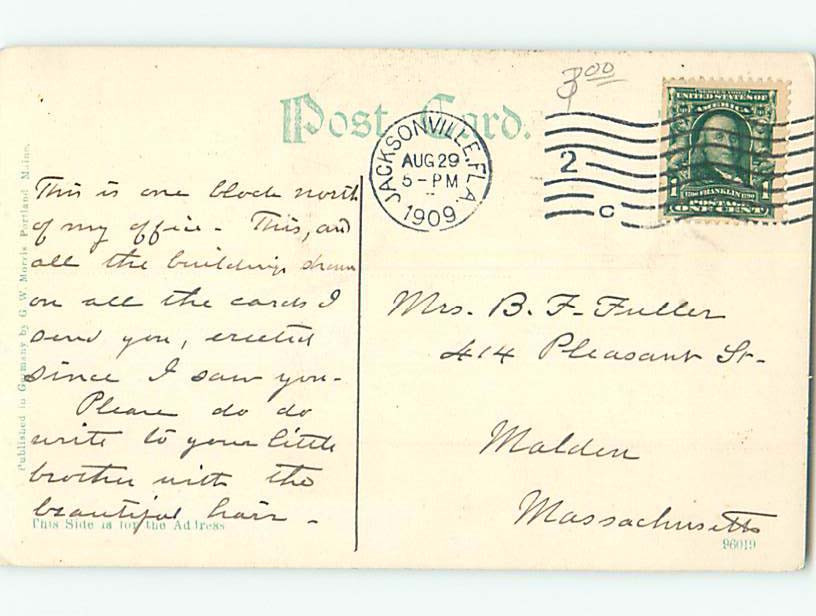 3 00
Post Card.
JACKSONVILLE, FLA.
AUG 29
5-PM
1909
2
C
UNITED STATES OF
AMERICA
1 FRANKLIN 1
POSTAGE
ONE CENT
This is one block north
of my office - This, and
all the buildings shown
on all the cards I
send you, erected
since I saw you -
Please do do
write to your little
brother with the
beautiful hair -
Mrs. B. F. Fuller
414 Pleasant St -
Malden
Massachusetts
Published in Germany by G. W. Morris Portland Maine.
This Side is for the Address
96019